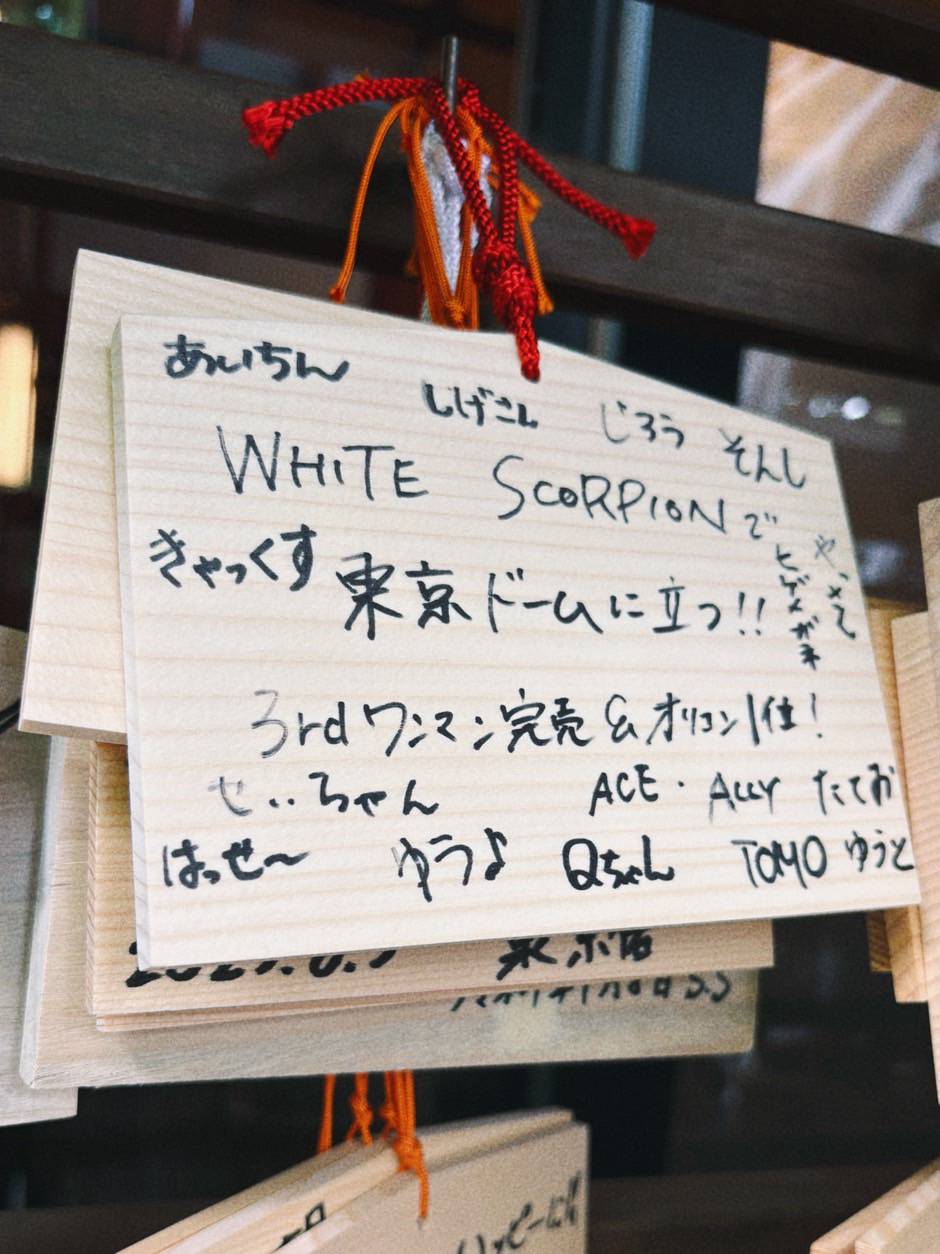 あいちん
しげさん じろう そんし
WHITE SCORPIONで
やってく
ヒゲメガネ
きゃっくす
東京ドームに立つ!!
3rdワンマン完売&オリコン1位!
せいちゃん ACE・ALLY たてお
はっせ〜 ゆうよ Qちゃん TOMO ゆうと